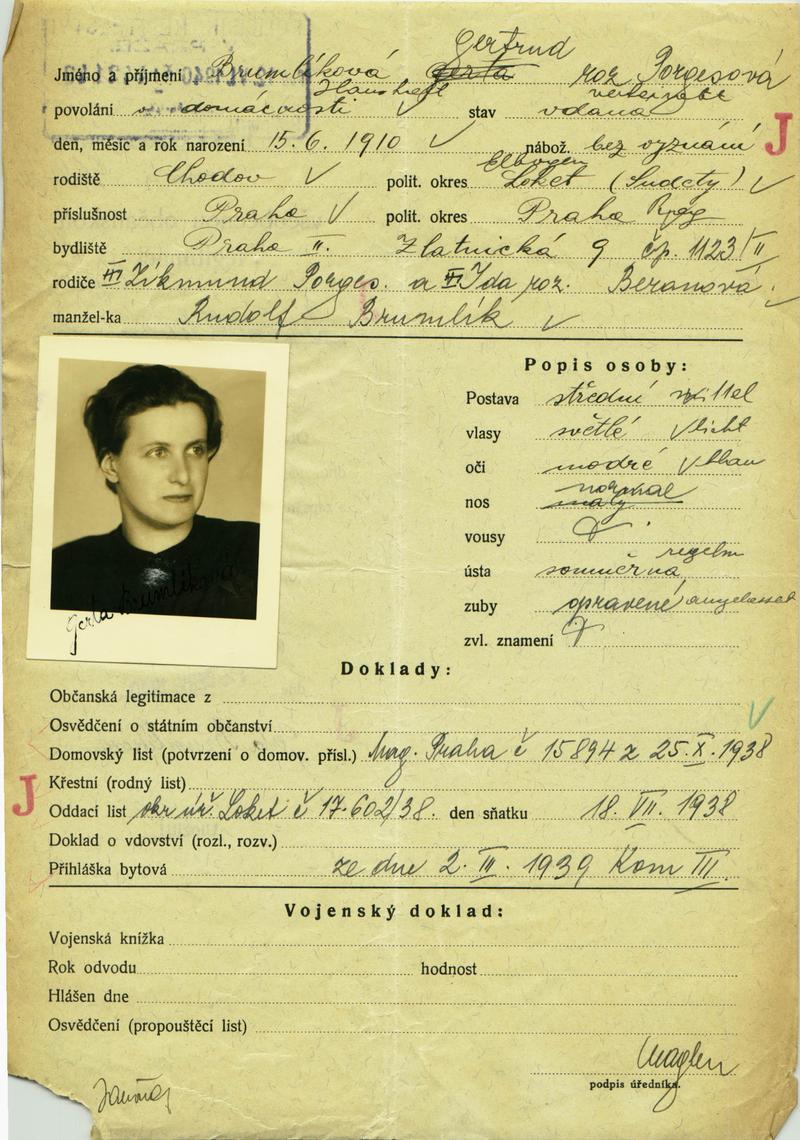 Gertrud
Jméno a příjmení Brumlíková Gerta roz. Porgesová
Haushalt verheiratet
povolání v domácnosti stav vdaná
J
den, měsíc a rok narození 15. 6. 1910 nábož. bez vyznání
Elbogen
rodiště Chodov polit. okres Loket (Sudety)
příslušnost Praha polit. okres Praha
bydliště Praha II. Zlatnická 9 čp. 1123/II
rodiče Zikmund Porges. a Ida roz. Beranová
manžel-ka Rudolf Brumlík
Popis osoby:
Postava střední mittel
vlasy světlé licht
oči modré blau
normal
nos malý
vousy
regelm
ústa souměrná
zuby opravené ausgebessert
zvl. znamení
Gerta Brumlíková
Doklady:
Občanská legitimace z
Osvědčení o státním občanství
Domovský list (potvrzení o domov. přísl.) Mag. Praha č 15894 z 25. X. 1938
Křestní (rodný list)
J
Oddací list okr. úř. Loket č 17.602/38. den sňatku 18. VII. 1938
Doklad o vdovství (rozl., rozv.)
Přihláška bytová ze dne 2. III. 1939 Kom III.
Vojenský doklad:
Vojenská knížka
Rok odvodu hodnost
Hlášen dne
Osvědčení (propouštěcí list)
podpis úředníka.